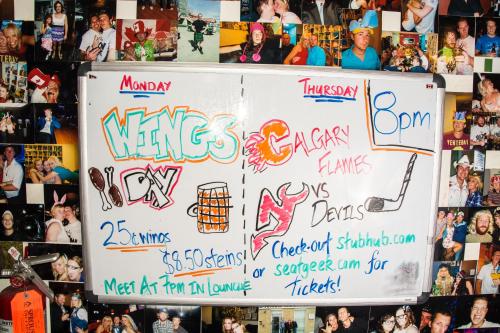 MONDAY
WINGS
DAY
25¢ WINGS
$8.50 steins
MEET AT 7PM IN LOUNGUE
THURSDAY
8pm
CALGARY
FLAMES
VS
DEVILS
Check-out stubhub.com
or seatgeek.com for
Tickets!